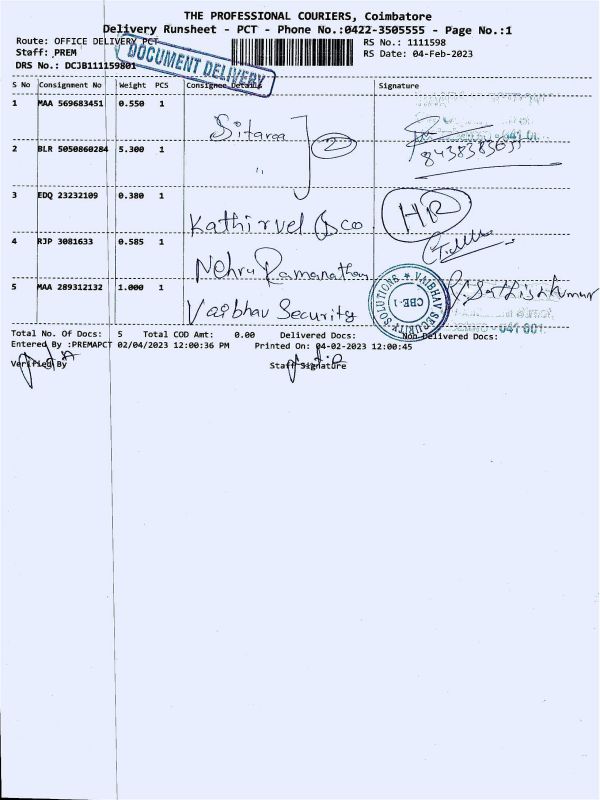 THE PROFESSIONAL COURIERS, Coimbatore
Delivery Runsheet - PCT - Phone No.:0422-3505555 - Page No.:1
Route: OFFICE DELIVERY PCT
RS No.: 1111598
Staff: PREM
RS Date: 04-Feb-2023
DRS No.: DCJB111159801
DOCUMENT DELIVERY
S No Consignment No Weight PCS Consignee Details Signature
1 MAA 569683451 0.550 1
Sitaraa 2
2 BLR 5050860284 5.300 1
" 
3 EDQ 23232109 0.380 1
Kathirvel & co HR
4 RJP 3081633 0.585 1
Nehru Ramanathan
5 MAA 289312132 1.000 1
Vaibhav Security
VAIBHAV SECURITY SOLUTIONS CBE-1
Total No. Of Docs: 5 Total COD Amt: 0.00 Delivered Docs: Non-Delivered Docs:
Entered By :PREMAPCT 02/04/2023 12:00:36 PM Printed On: 04-02-2023 12:00:45
Verified By Staff Signature